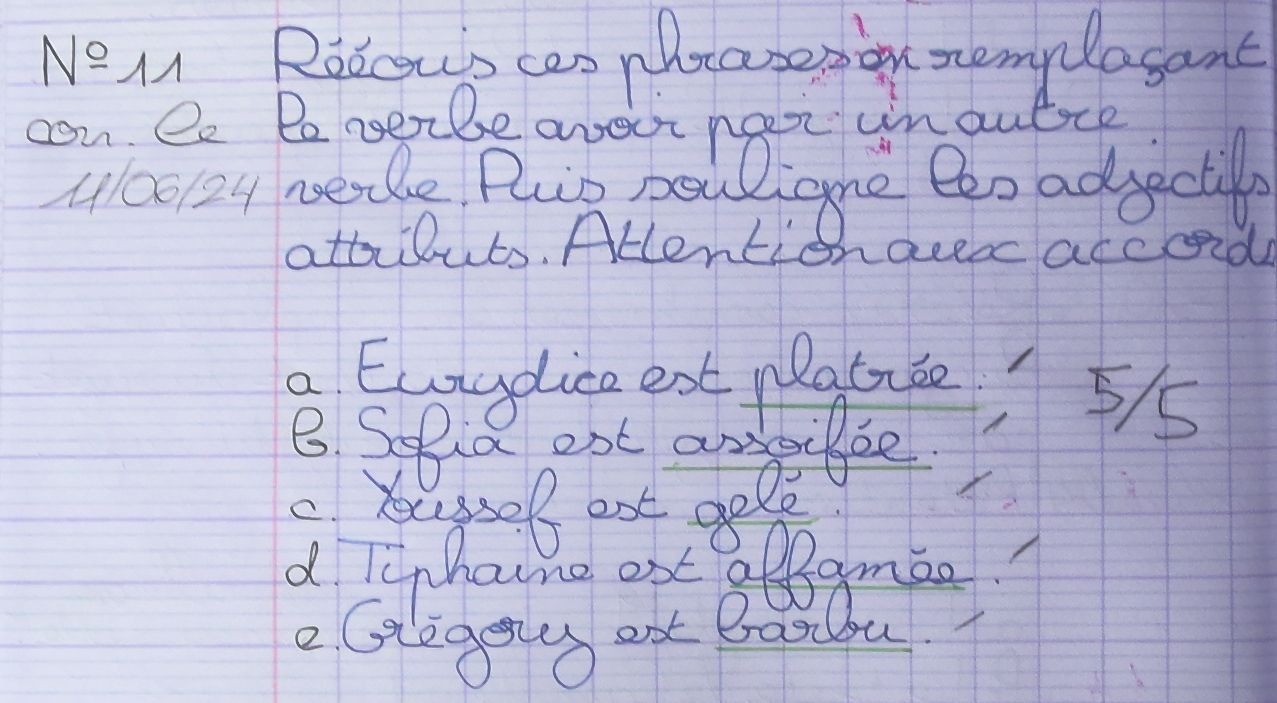 Nº 11 Réécris ces phrases en remplaçant
cor. le le verbe avoir par un autre
11/06/24 verbe. Puis souligne les adjectifs
attributs. Attention aux accords
a. Eurydice est platrée.
b. Sofia est assoifée. 5/5
c. Youssef est gelé.
d. Tiphaine est affamée.
e. Grégory est barbu.